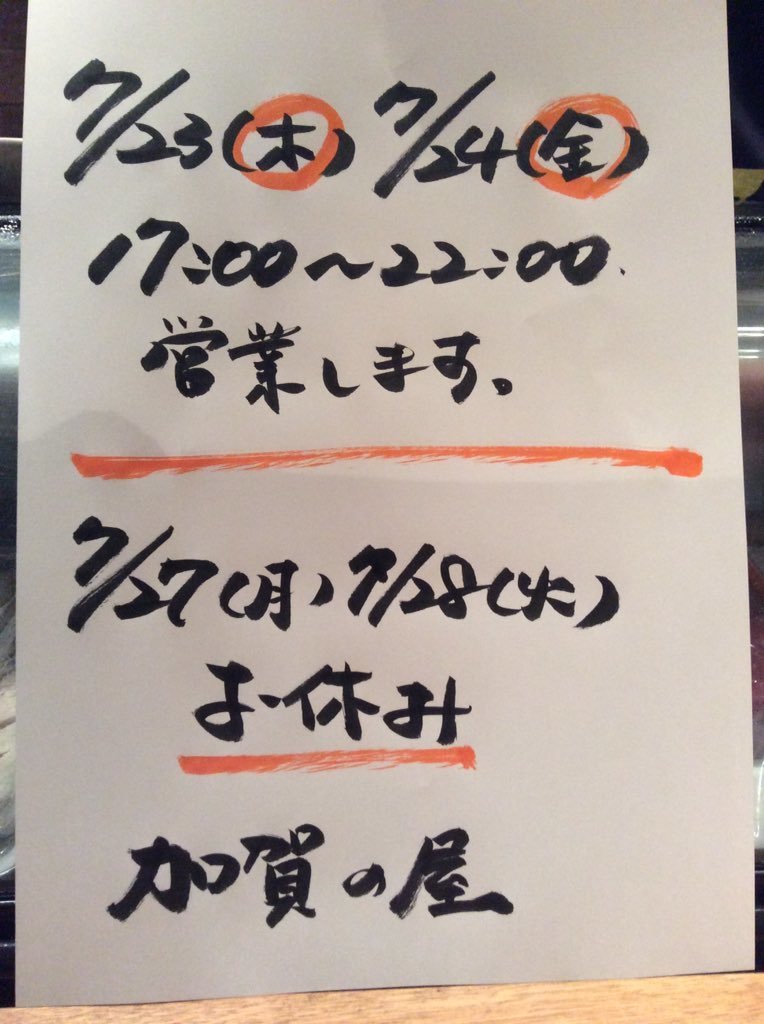 7/23(木) 7/24(金)
17:00〜22:00.
営業します。
7/27(月) 7/28(火)
お休み
加賀の屋